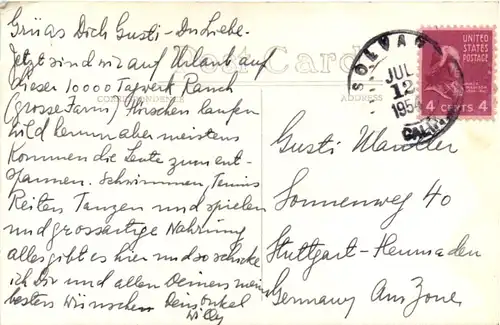 Grüss Dich Gusti - Du Liebe.
Jetzt sind wir auf Urlaub auf
dieser 10000 Tagwerk Ranch
(grosse Farm) Hirschen laufen
wild herum aber meistens
kommen die Leute zum ent-
spannen. Schwimmen, Tennis
Reiten Tanzen und spielen
und grossartige Nahrung
alles gibt es hier und so schicke
ich Dir und allen Deinen meine
besten Wünsche Dein Onkel
Willy
Post Card
CORRESPONDENCE
ADDRESS
SOLVANG
JUL
12
1954
CALIF.
UNITED
STATES
POSTAGE
4 CENTS 4
Gusti
Sonnenweg 40
Stuttgart-Heumaden
Germany Am Zone